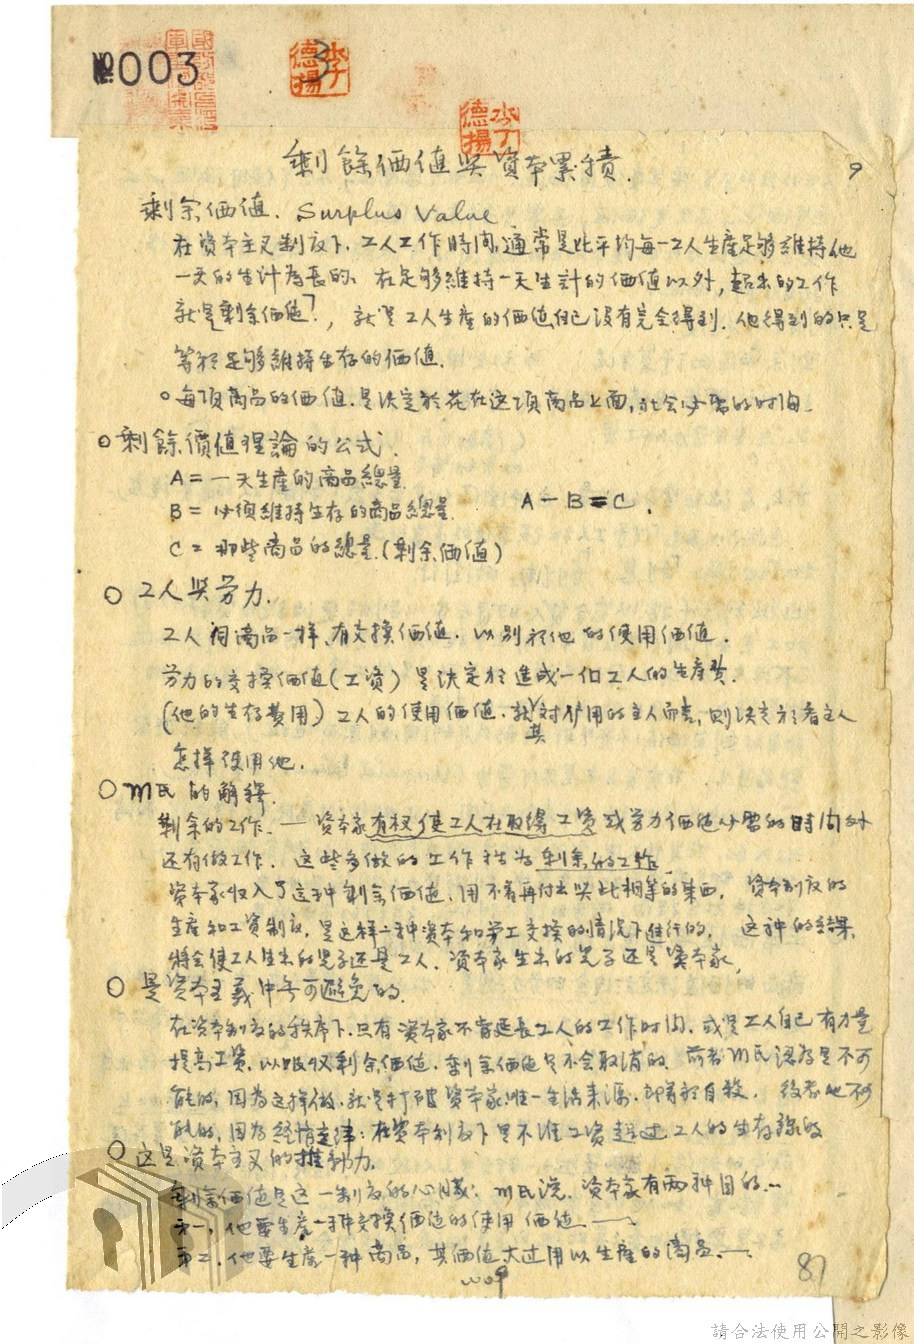 №003
3
李德揚
李德揚
剩餘価值与資本累積.
9
剩余価值. Surplus Value
在资本主义制度下、工人工作时间,通常是比平均每一工人生産足够維持他
一天的生计為長的、在足够維持一天生計的価值以外,超出的工作
就是剩余価值,就是工人生産的価值自己没有完全得到.他得到的只是
等於足够維持生存的価值.
○每項商品的価值.是決定於花在这項商品上面,社会必需的时间.
○剩餘價值理論的公式.
A=一天生産的商品總量
B=必須維持生存的商品總量. A-B=C.
C=那些商品的總量.(剩余価值)
○工人與労力.
工人同商品一样、有交换価值.以别於他的使用価值.
労力的交换価值(工资)是決定於造成一個工人的生産費.
(他的生存費用)工人的使用価值.就対其僱用的主人而言,則決定於看主人
怎样使用他.
○M氏的解釋.
剩余的工作.—资本家有权使工人在取得工资或労力価值必需的時间外
还有做工作.这些多做的工作称为剩余的工作.
资本家收入了这种剩余価值.用不着再付出与此相等的東西.资本制度的
生産和工资制度,是这样一种资本和労工交换的情况下进行的.这种的結果.
將会使工人生出的児子还是工人.资本家生出的児子还是资本家,
○是资本主義中無可避免的.
在资本制度的秩序下.只有资本家不肯延長工人的工作时间.或是工人自己有力量
提高工资.以吸收剩余価值.剩余価值是不会取消的.前者M氏認为是不可
能的,因为这样做.就是打破资本家唯一生活来源.即等於自殺.後者也不可
能的,因为經濟定律:在资本制度下是不准工资超过工人的生存線的
○这是资本主义的推動力.
剩余価值是这一制度的心臟:M氏説.资本家有両种目的..
第一,他要生産一种交换価值的使用価值——.
第二.他要生産一种商品,其価值大过用以生産的商品.—.
0009
87
請合法使用公開之影像